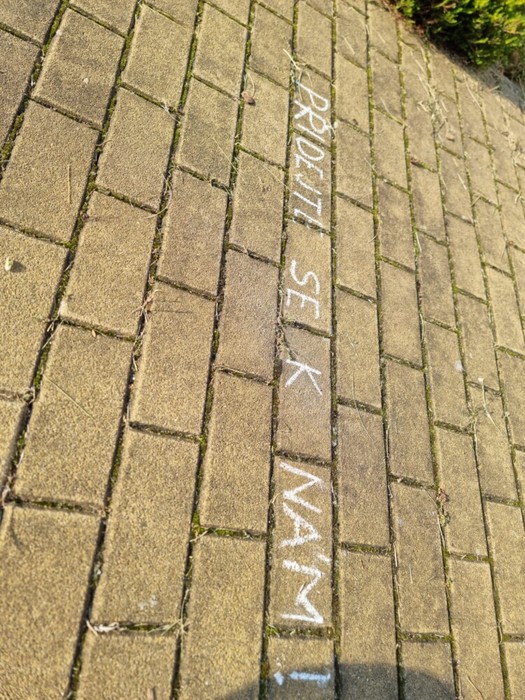 PŘIDEJTE SE K NÁM...!